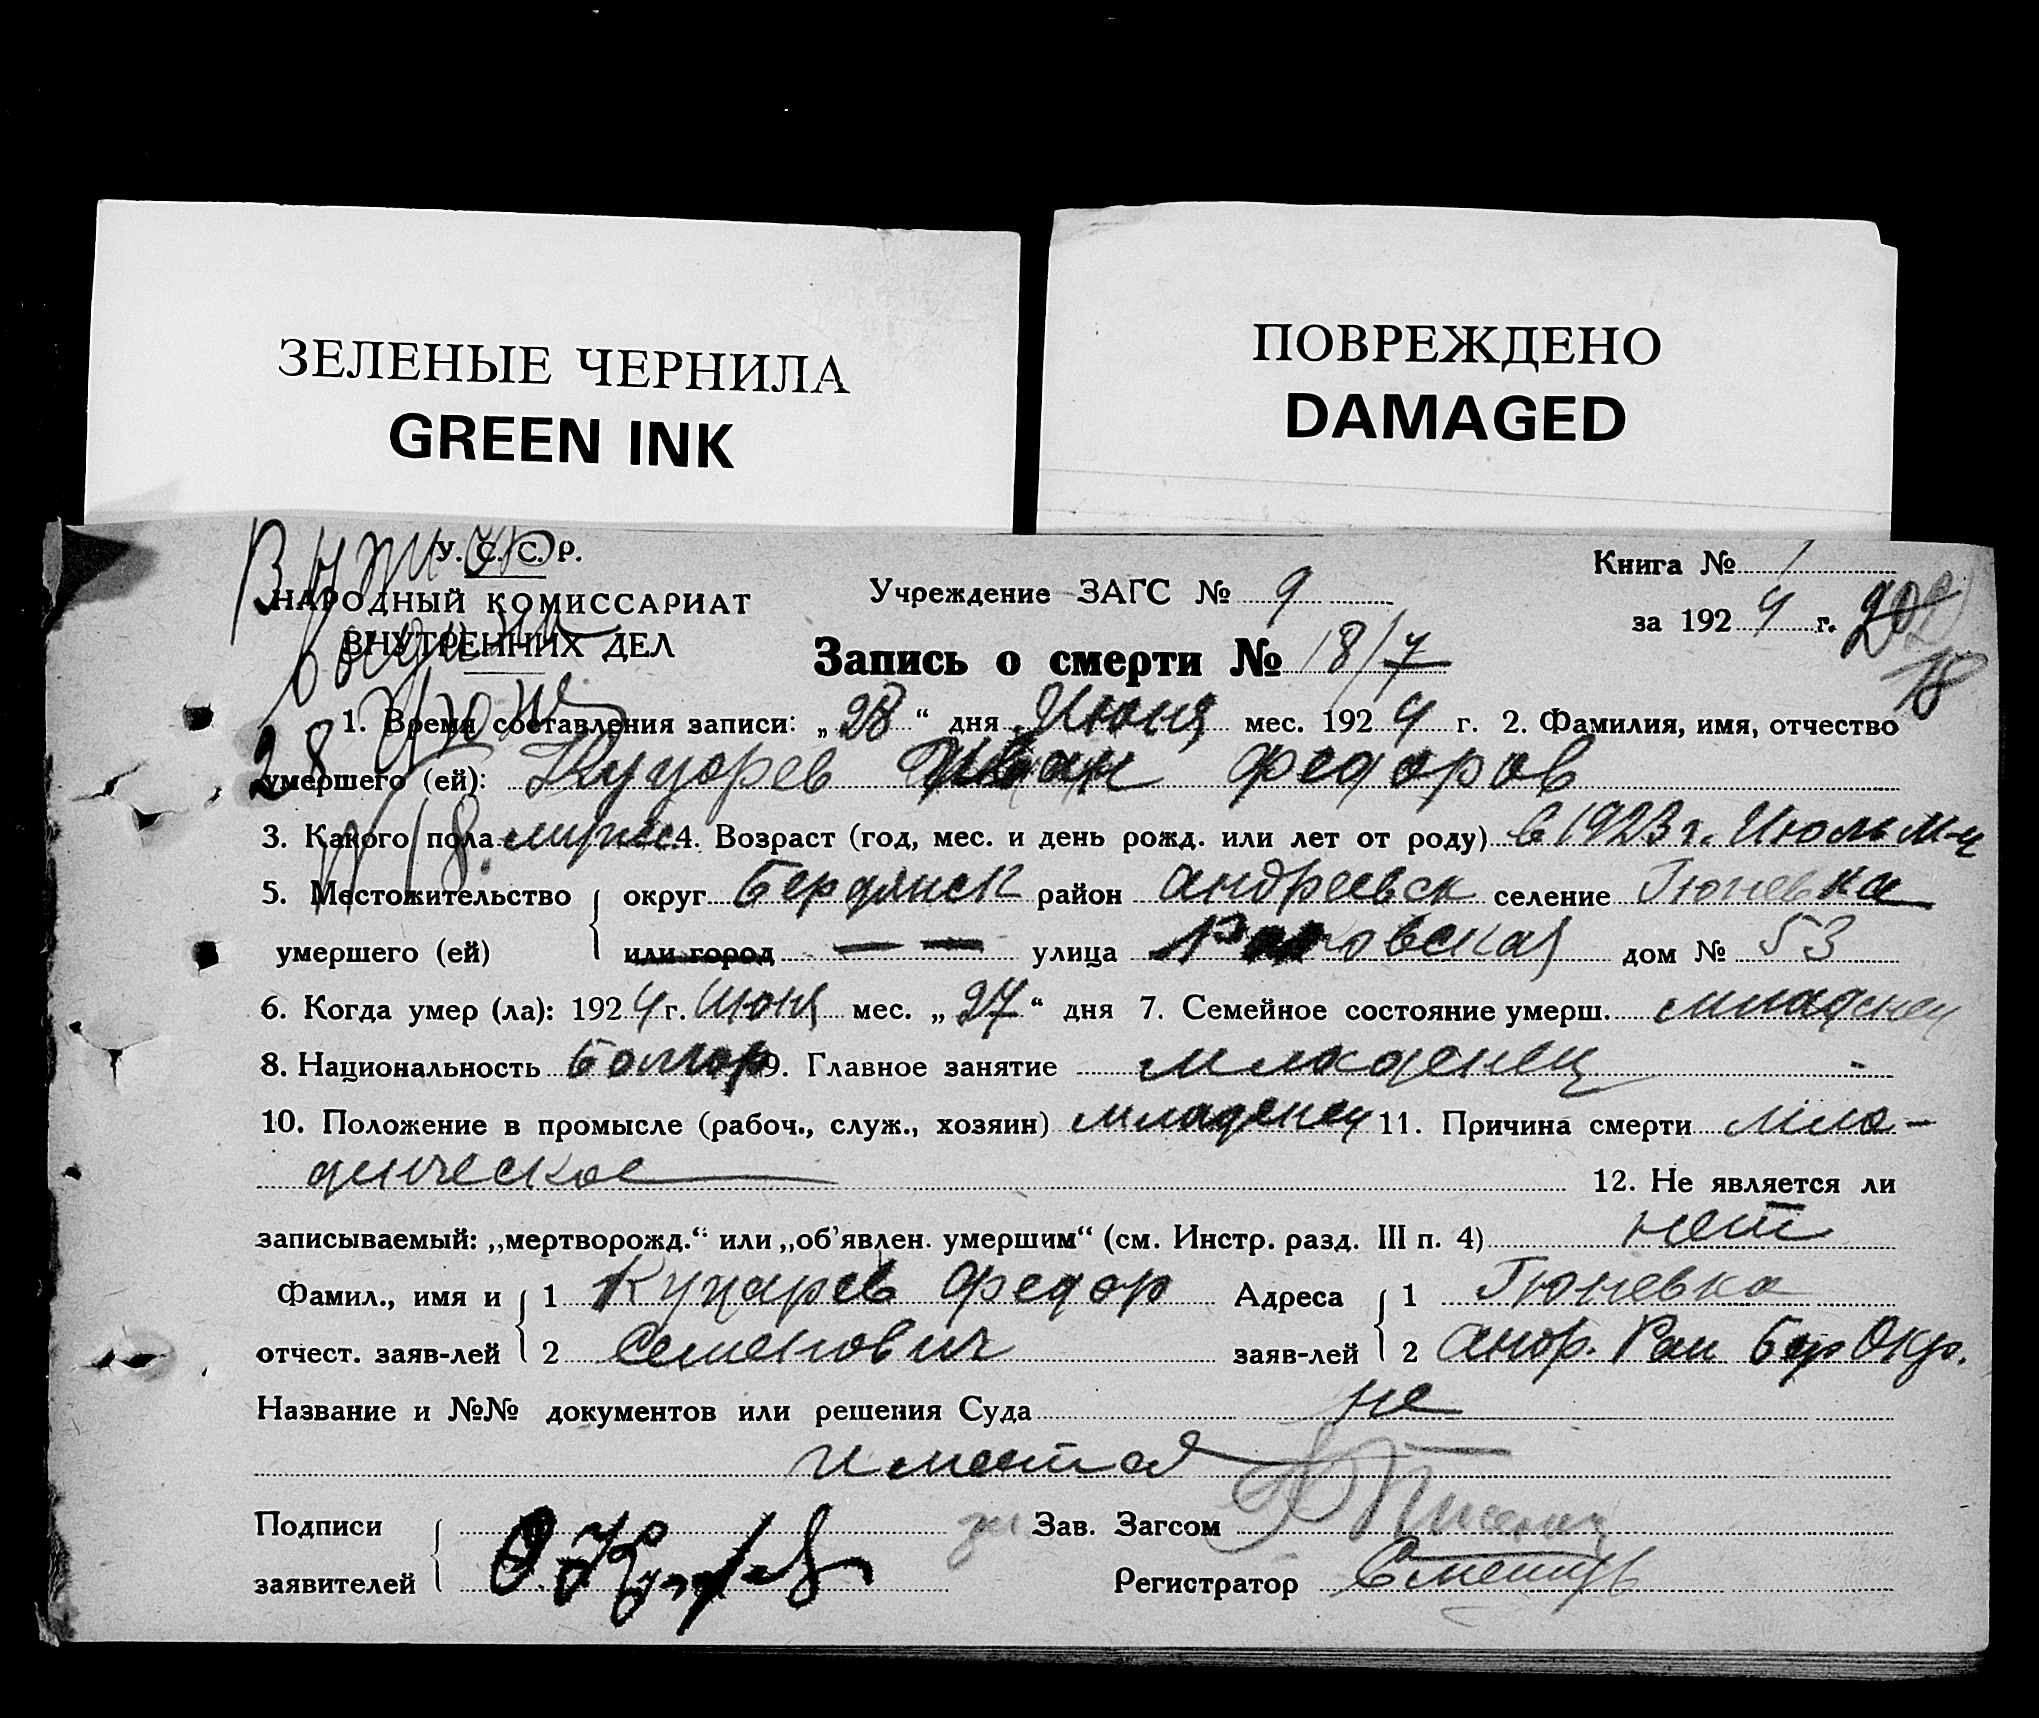 ЗЕЛЕНЫЕ ЧЕРНИЛА
GREEN INK
ПОВРЕЖДЕНО
DAMAGED
У. С. С. Р.
НАРОДНЫЙ КОМИССАРИАТ
ВНУТРЕННИХ ДЕЛ
28 Июня
Учреждение ЗАГС № 9
Книга № 1
за 1924 г.
18
Запись о смерти № 18/7
1. Время составления записи: „28“ дня Июня мес. 1924 г. 2. Фамилия, имя, отчество
умершего (ей): Куцарев Иван Федоров
3. Какого пола 4. Возраст (год, мес. и день рожд. или лет от роду) в 1923 г. Июль М-ц
5. Местожительство округ Бердянск район Андреевск селение Гюневка
умершего (ей) или город — — улица дом № 53
6. Когда умер (ла): 1924 г. Июня мес. „27“ дня 7. Семейное состояние умерш. младенец
8. Национальность Болгар 9. Главное занятие младенец
10. Положение в промысле (рабоч., служ., хозяин) младенец 11. Причина смерти мла-
денческое 12. Не является ли
записываемый: „мертворожд.“ или „об'явлен. умершим“ (см. Инстр. разд. III п. 4) нет
Фамил., имя и 1 Куцарев Федор Адреса 1 Гюневка
отчест. заяв-лей 2 Семенович заяв-лей 2 Андр. Рай Бер Окр.
Название и №№ документов или решения Суда не
имеется
Подписи Зав. Загсом
заявителей Регистратор